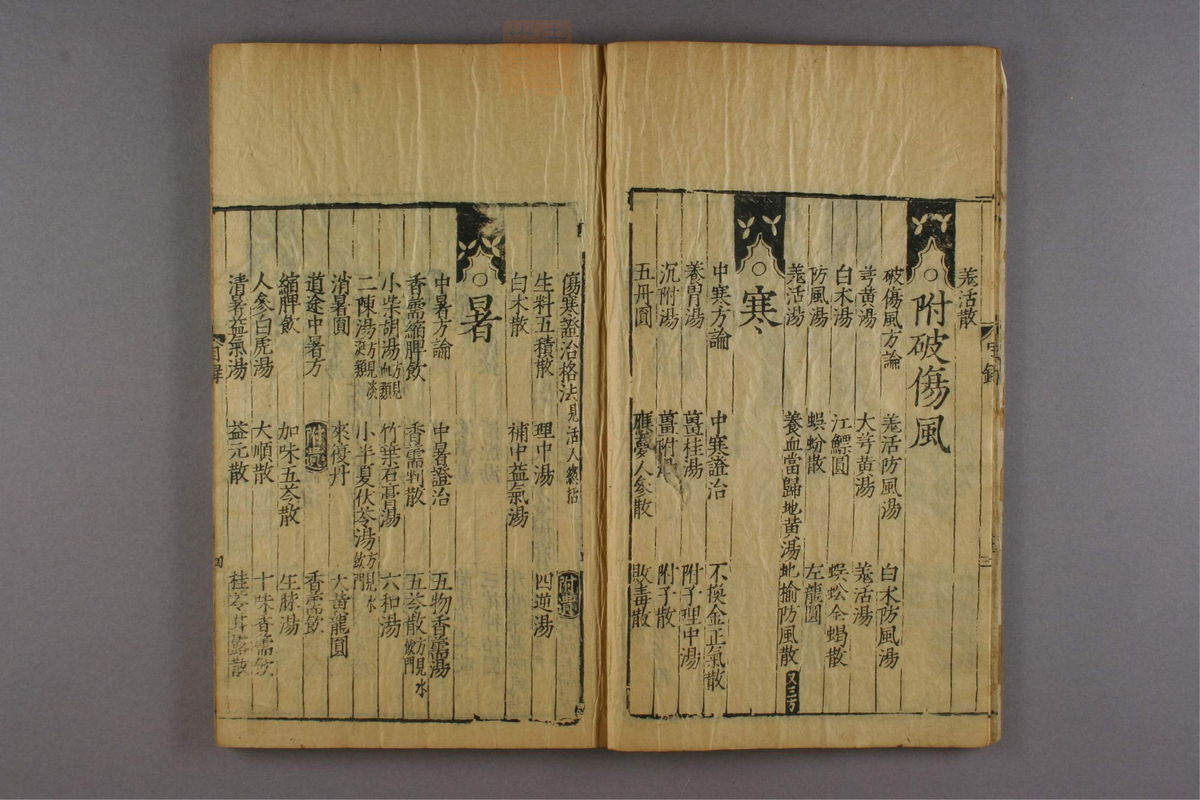 羗活散
附破傷風
破傷風方論 羗活防風湯 白术防風湯
芎黄湯 大芎黄湯 羗活湯
白术湯 江鰾圓 蜈蚣全蝎散
防風湯 蜈蚣散 左龍圓
羗活湯 養血當歸地黄湯 地榆防風散 又三方
寒
中寒方論 中寒證治 不換金正氣散
養胃湯 薑桂湯 附子理中湯
沉附湯 薑附湯 附子散
五丹圓 應夢人參散 敗毒散
傷寒證治格法見活人總括 附遺
生料五積散 理中湯 四逆湯
白术散 補中益氣湯
暑
中暑方論 中暑證治 五物香薷湯
香薷縮脾飲 香薷判散 五苓散方見水飲門
小柴胡湯方見血類 竹葉石膏湯 六和湯
二陳湯方見痰涎類 小半夏伏苓湯方見水飲門
消暑圓 來復丹 大黄龍圓
道途中暑方 附遺 香薷飲
縮脾飲 加味五苓散 生脉湯
人參白虎湯 大順散 十味香薷飲
清暑益氣湯 益元散 桂苓甘露散